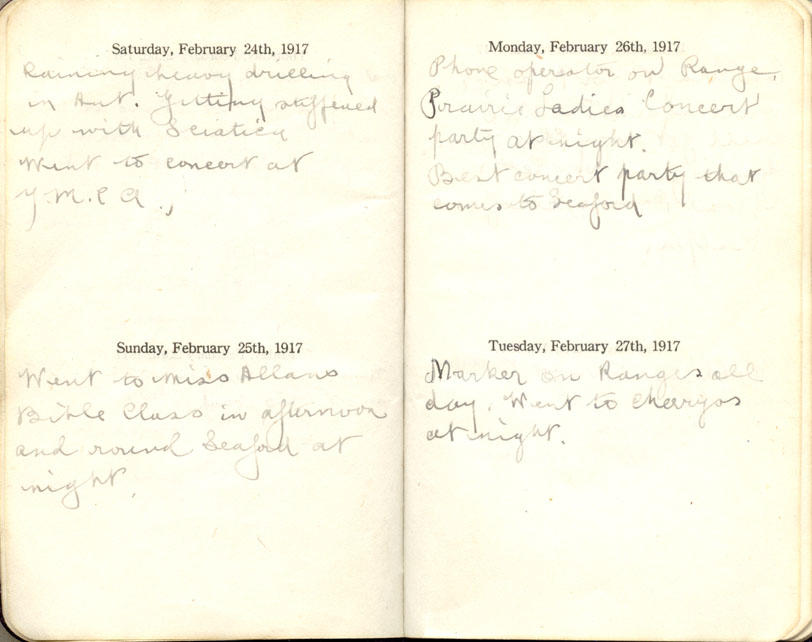 Saturday, February 24th, 1917
Raining heavy drilling
in Hut. Getting stiffened
up with Sciatica
Went to concert at
Y.M.C.A.,
Sunday, February 25th, 1917
Went to Miss Allans
Bible Class in afternoon
and round Seaford at
night.
Monday, February 26th, 1917
Phone operator on Range.
Prairie Ladies Concert
party at night.
Best concert party that
comes to Seaford
Tuesday, February 27th, 1917
Marker on Ranges all
day. Went to Cheeryos
at night.